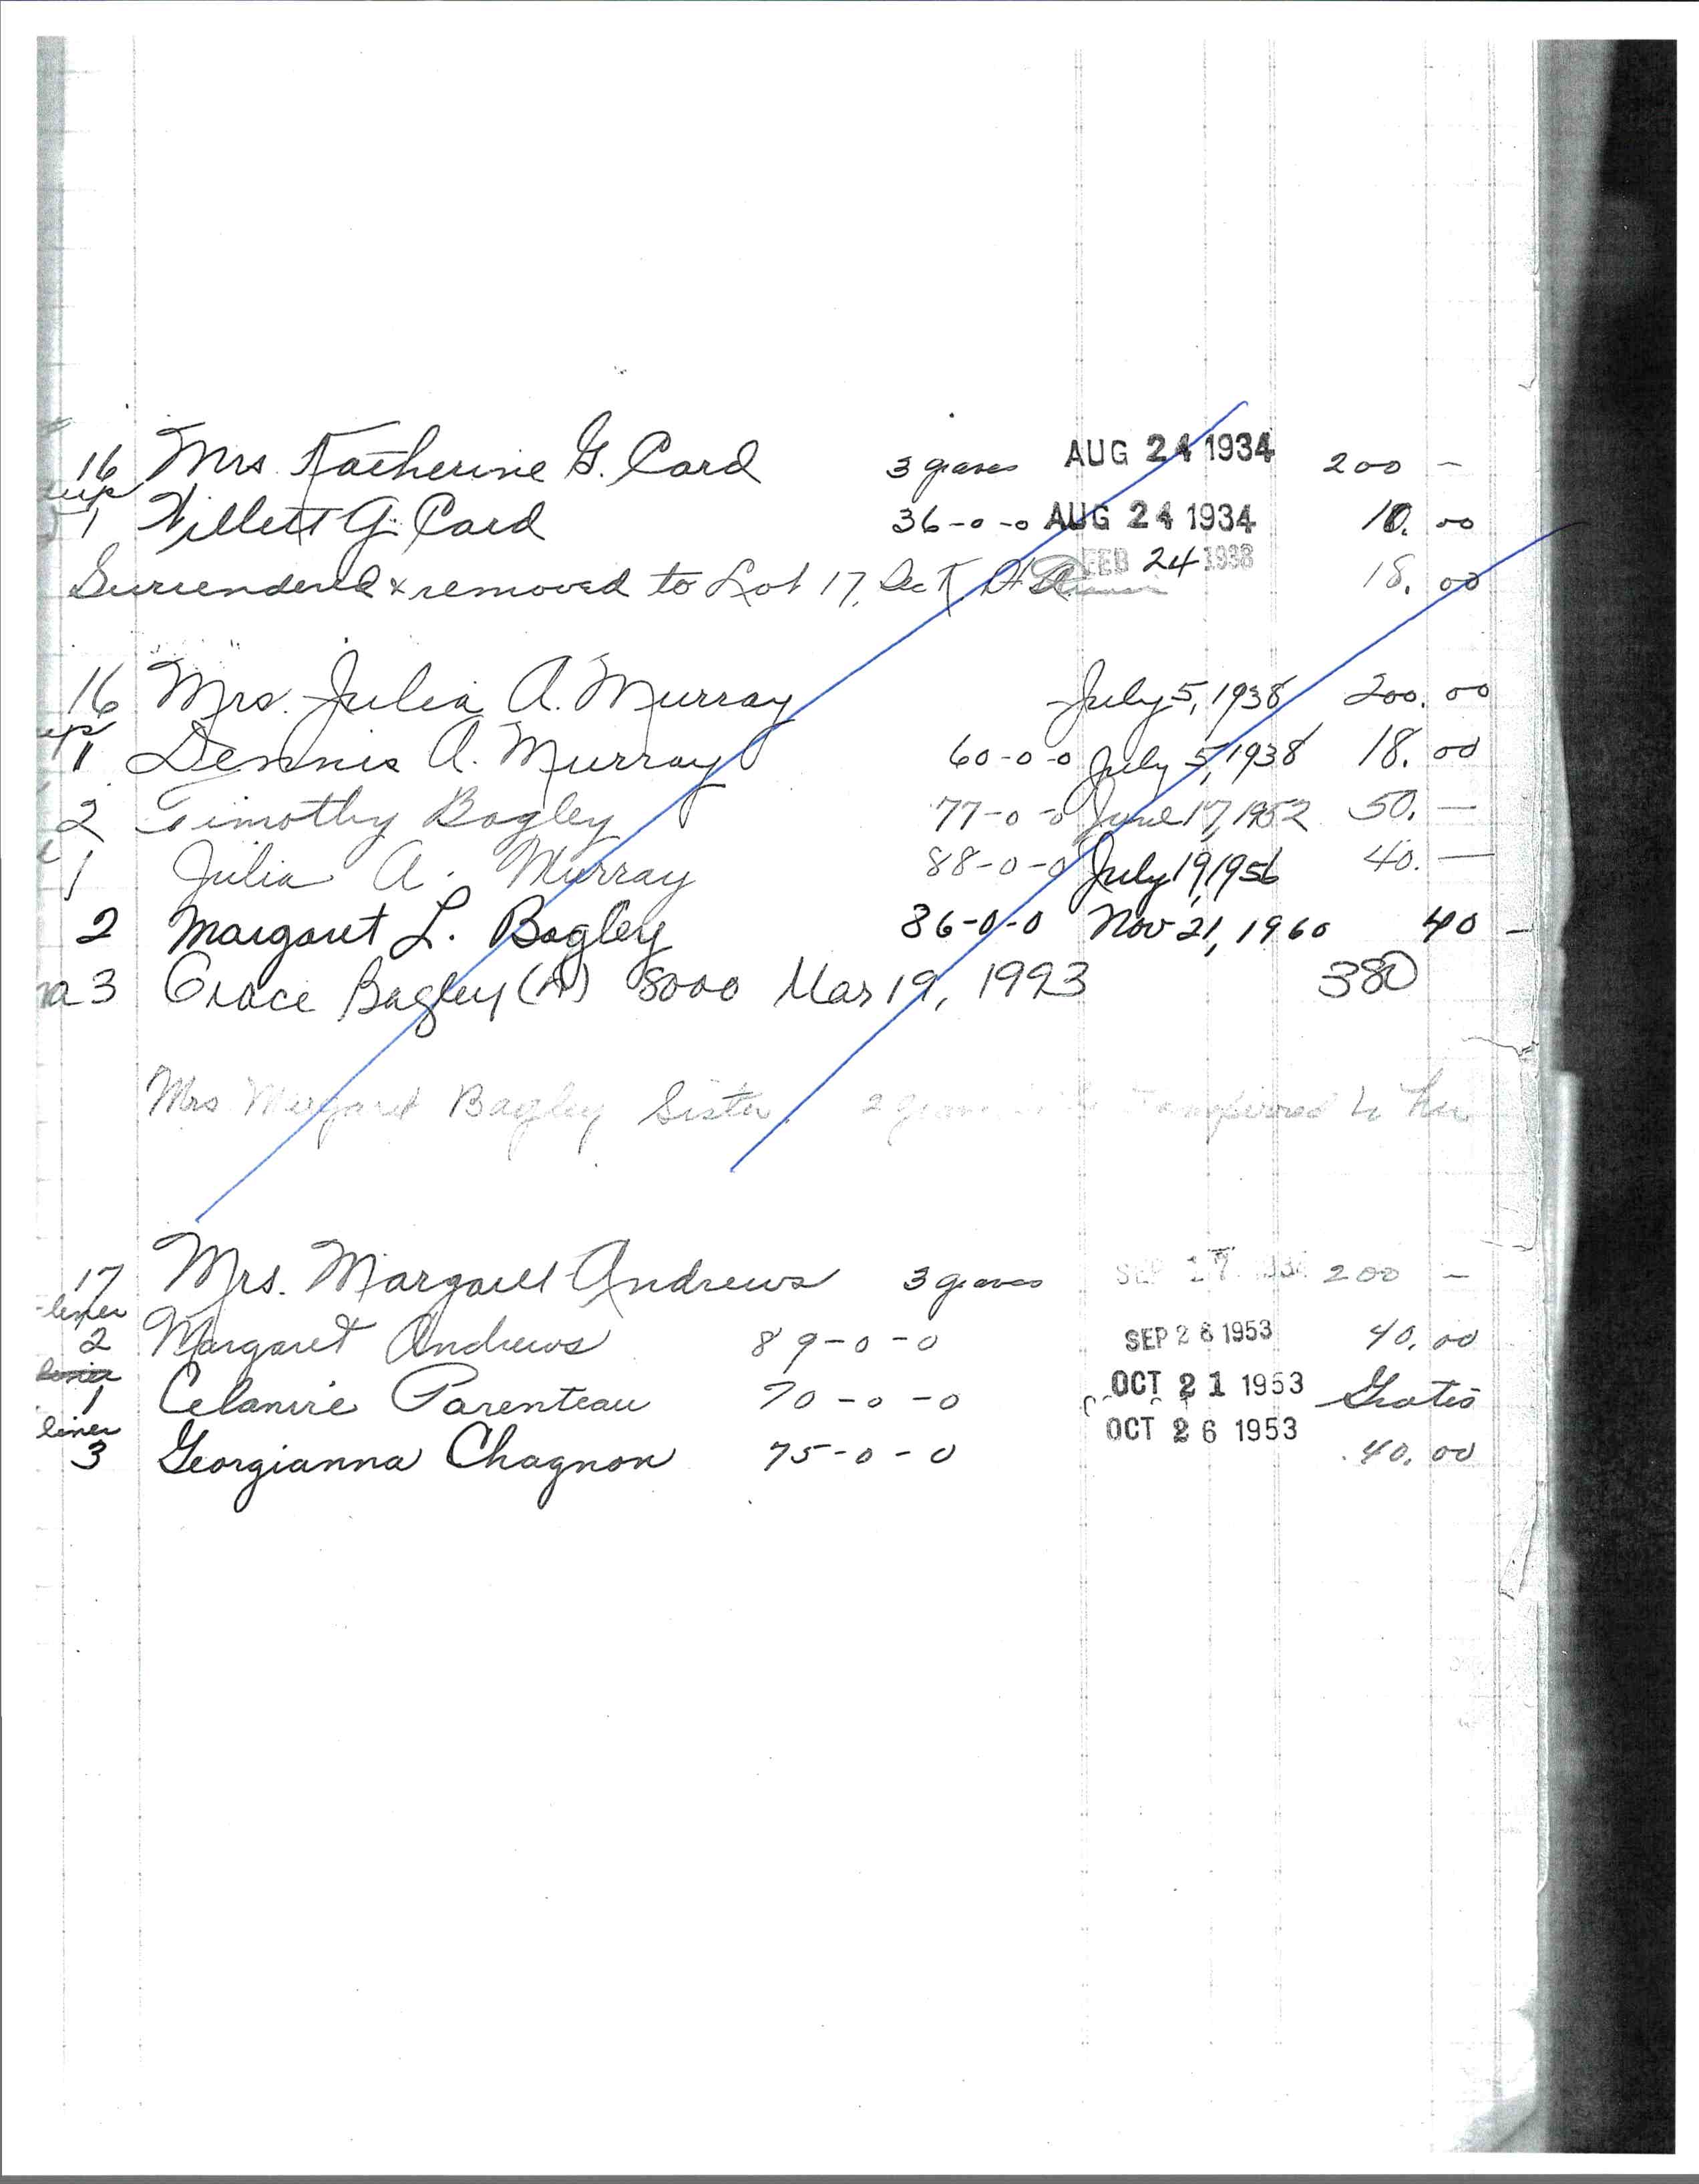 16 Mrs. Katherine G. Card 3 graves AUG 24 1934 200 –
1 Willett G. Card 36-0-0 AUG 24 1934 10.00
Surrendered & removed to Lot 17, Sec FEB 24 1938 18.00
16 Mrs. Julia A. Murray July 5, 1938 200.00
1 Dennis A. Murray 60-0-0 July 5, 1938 18.00
2 Timothy Bagley 77-0-0 June 17, 1952 50. –
1 Julia A. Murray 88-0-0 July 19, 1956 40. –
2 Margaret L. Bagley 86-0-0 Nov 21, 1960 40 –
3 Grace Bagley (A) 8000 Mar 19, 1993 380
Mrs Margaret Bagley Sister. 2 graves to be Transferred to her
17 Mrs. Margaret Andrews 3 graves SEP 17 1934 200 –
liner
2 Margaret Andrews 89-0-0 SEP 26 1953 40.00
liner
1 Celanire Parenteau 70-0-0 OCT 21 1953 Gratis
liner
3 Georgianna Chagnon 75-0-0 OCT 26 1953 40.00